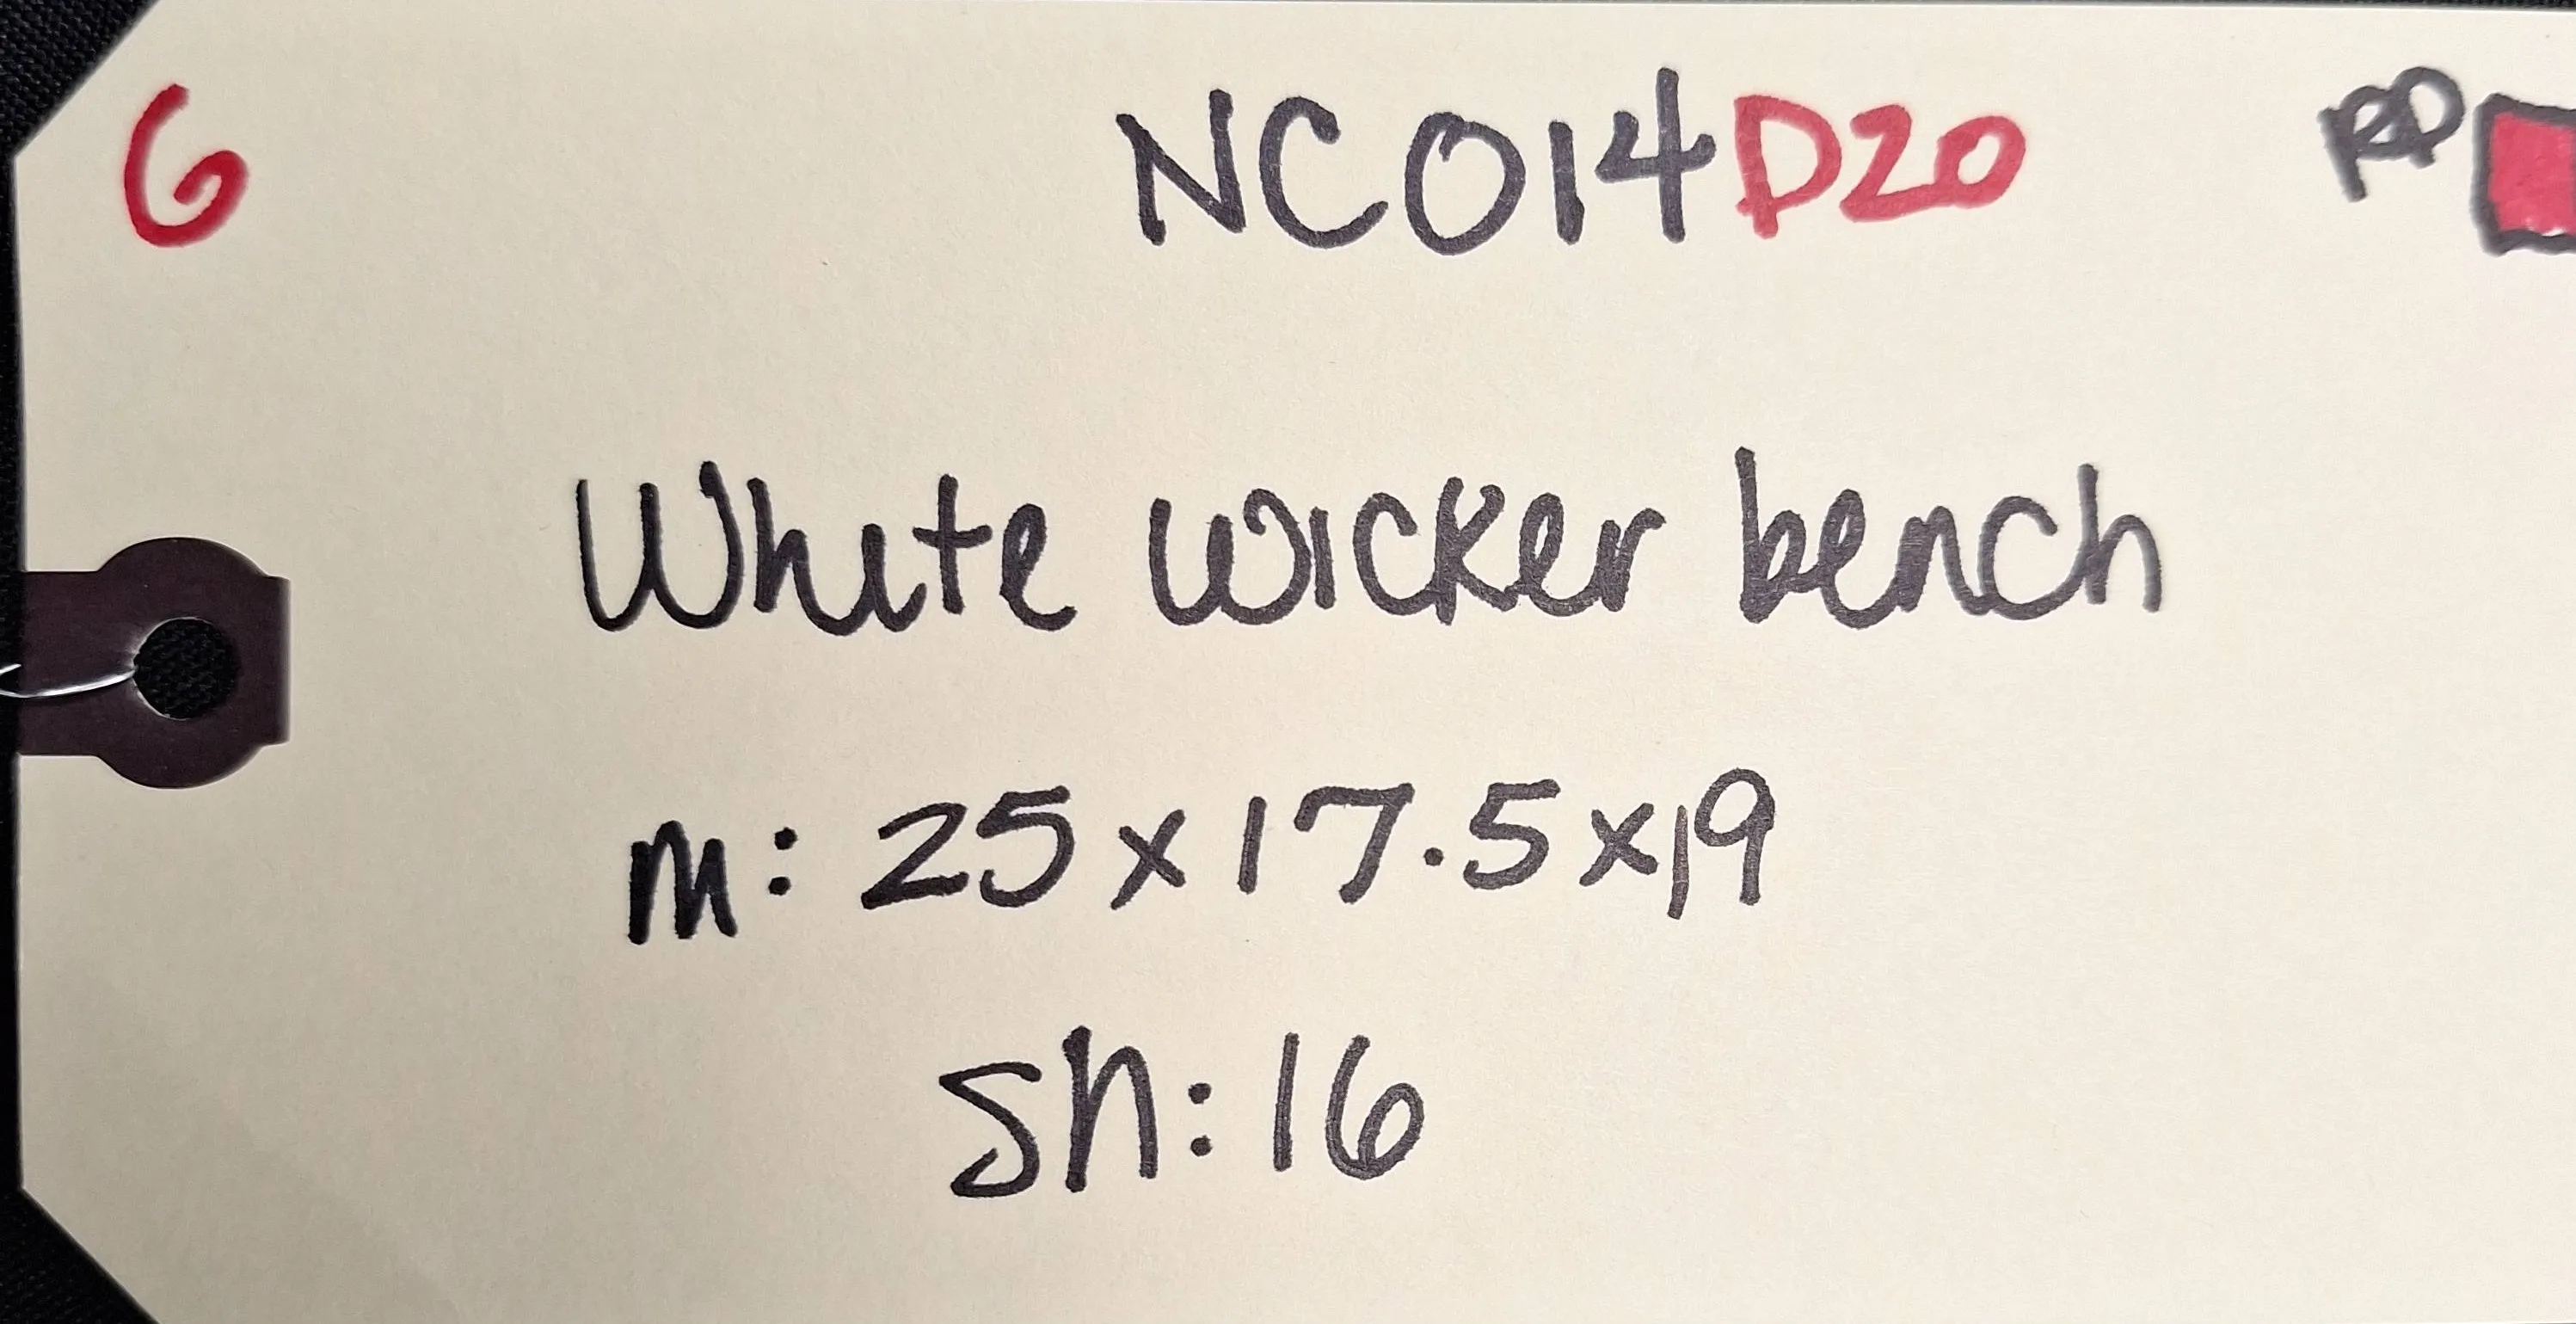 G NCO14D20 RP
White wicker bench
m: 25x17.5x19
Sh: 16